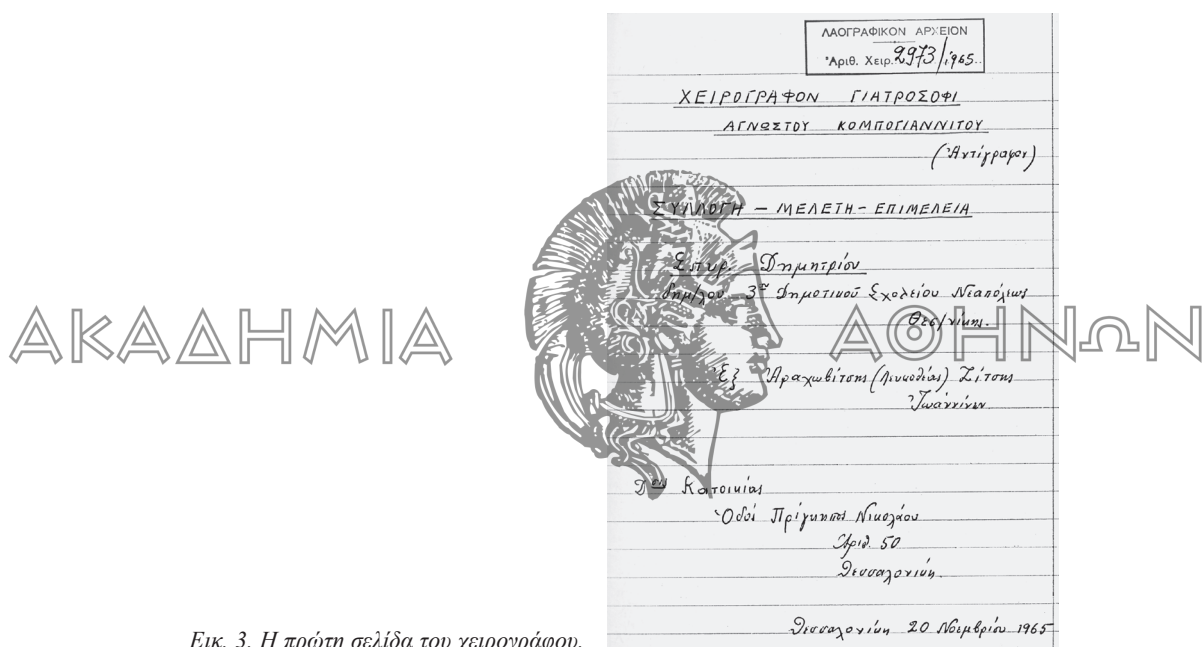 ΛΑΟΓΡΑΦΙΚΟΝ ΑΡΧΕΙΟΝ
Ἀριθ. Χειρ. 2973/1965
ΧΕΙΡΟΓΡΑΦΟΝ ΓΙΑΤΡΟΣΟΦΙ
ΑΓΝΩΣΤΟΥ ΚΟΜΠΟΓΙΑΝΝΙΤΟΥ
(Ἀντίγραφον)
ΣΥΛΛΟΓΗ - ΜΕΛΕΤΗ - ΕΠΙΜΕΛΕΙΑ
Σπυρ. Δημητρίου
δημ/λου 3ου Δημοτικοῦ Σχολείου Νεαπόλεως
Θεσ/νίκης.
ΑΚΑΔΗΜΙΑ ΑΘΗΝΩΝ
Ἐξ Ἀραχωβίτσης (Λευκοθέας) Ζίτσης
Ἰωαννίνων
Δσις Κατοικίας
Ὁδὸς Πρίγκηπος Νικολάου
Ἀριθ. 50
Θεσσαλονίκη.
Θεσσαλονίκη 20 Νοεμβρίου 1965
Εικ. 3. Η πρώτη σελίδα του χειρογράφου.